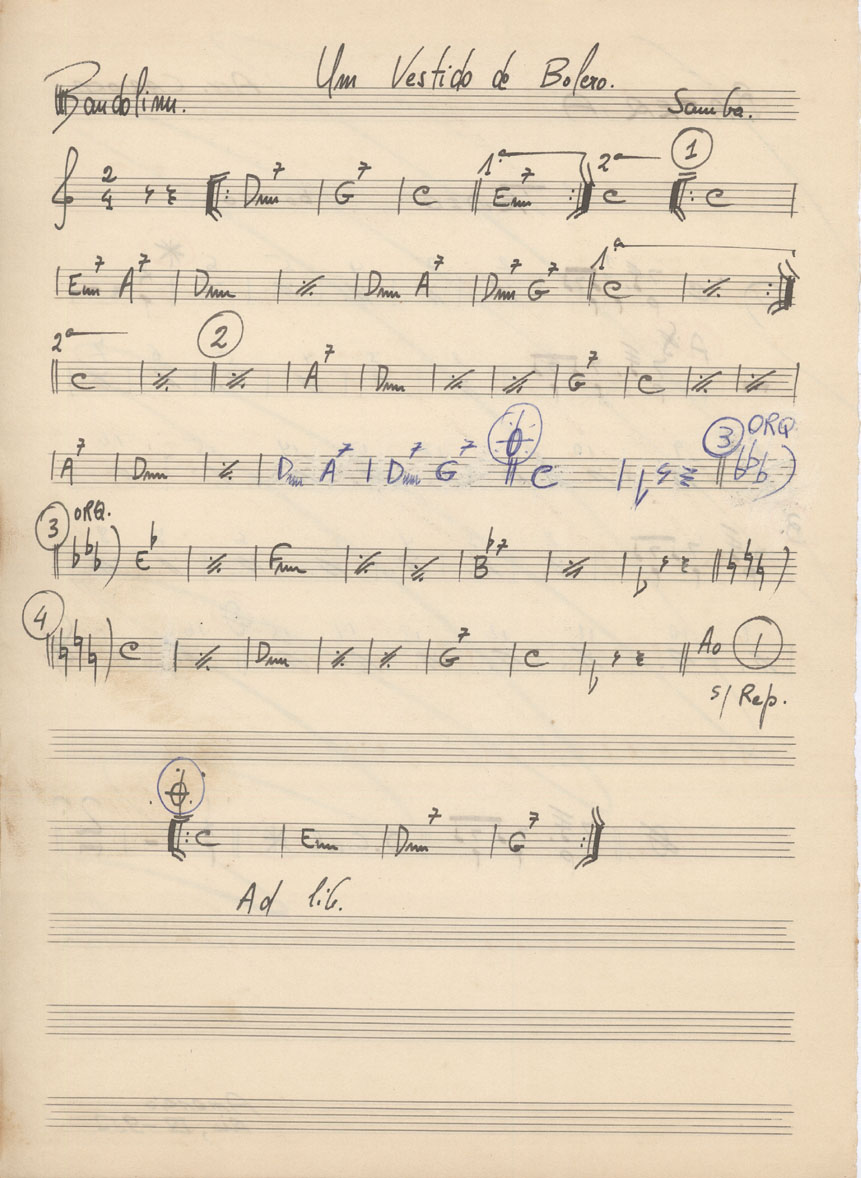 Um Vestido de Bolero.
Bandolim. Samba.
1ª 2ª 1
2/4 Dm7 G7 C Em7 C C
1ª
Em7 A7 Dm ٪ Dm A7 Dm7 G7 C ٪
2ª 2
C ٪ ٪ A7 Dm ٪ ٪ G7 C ٪ ٪
3 ORQ.
A7 Dm ٪ Dm A7 Dm7 G7 C ♭♭♭)
3 ORQ.
♭♭♭) E♭ ٪ Fm ٪ ٪ B♭7 ٪ ♮♮♮)
4
♮♮♮) C ٪ Dm ٪ ٪ G7 C Ao 1
s/ Rep.
C Em Dm7 G7
Ad lib.